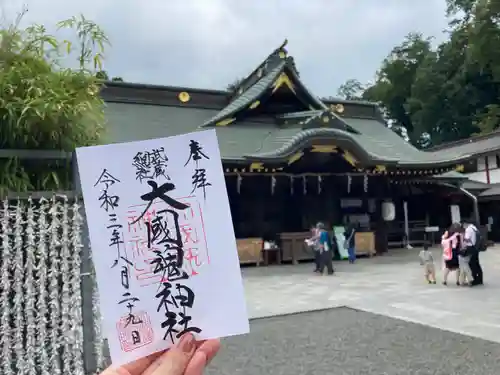 奉拝
武蔵
總社
大國魂神社
令和三年八月二十九日